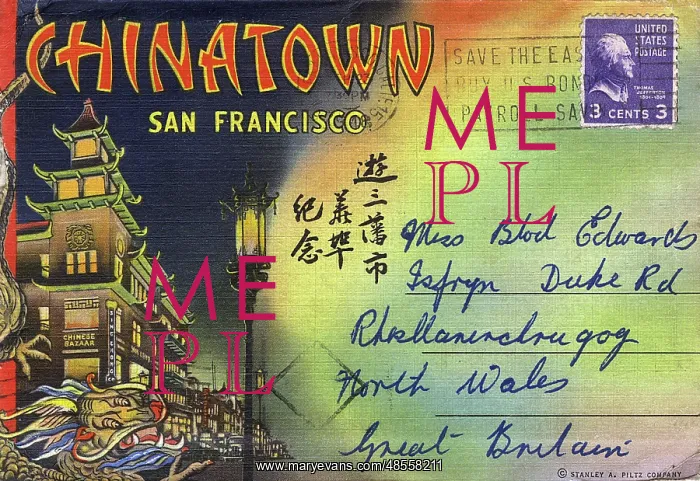 CHINATOWN
SAN FRANCISCO
SAVE THE EAS
BUY U.S. BON
PAYROLL SAV
UNITED
STATES
POSTAGE
THOMAS
JEFFERSON
1801-1809
3 CENTS 3
遊三藩市
華埠
紀念
CHINESE
BAZAAR
Miss Blod Edwards
Isfryn Duke Rd
Rhosllanerchrugog
North Wales
Great Britain
ME
PL
ME
PL
www.maryevans.com/48558211
© STANLEY A. PILTZ COMPANY